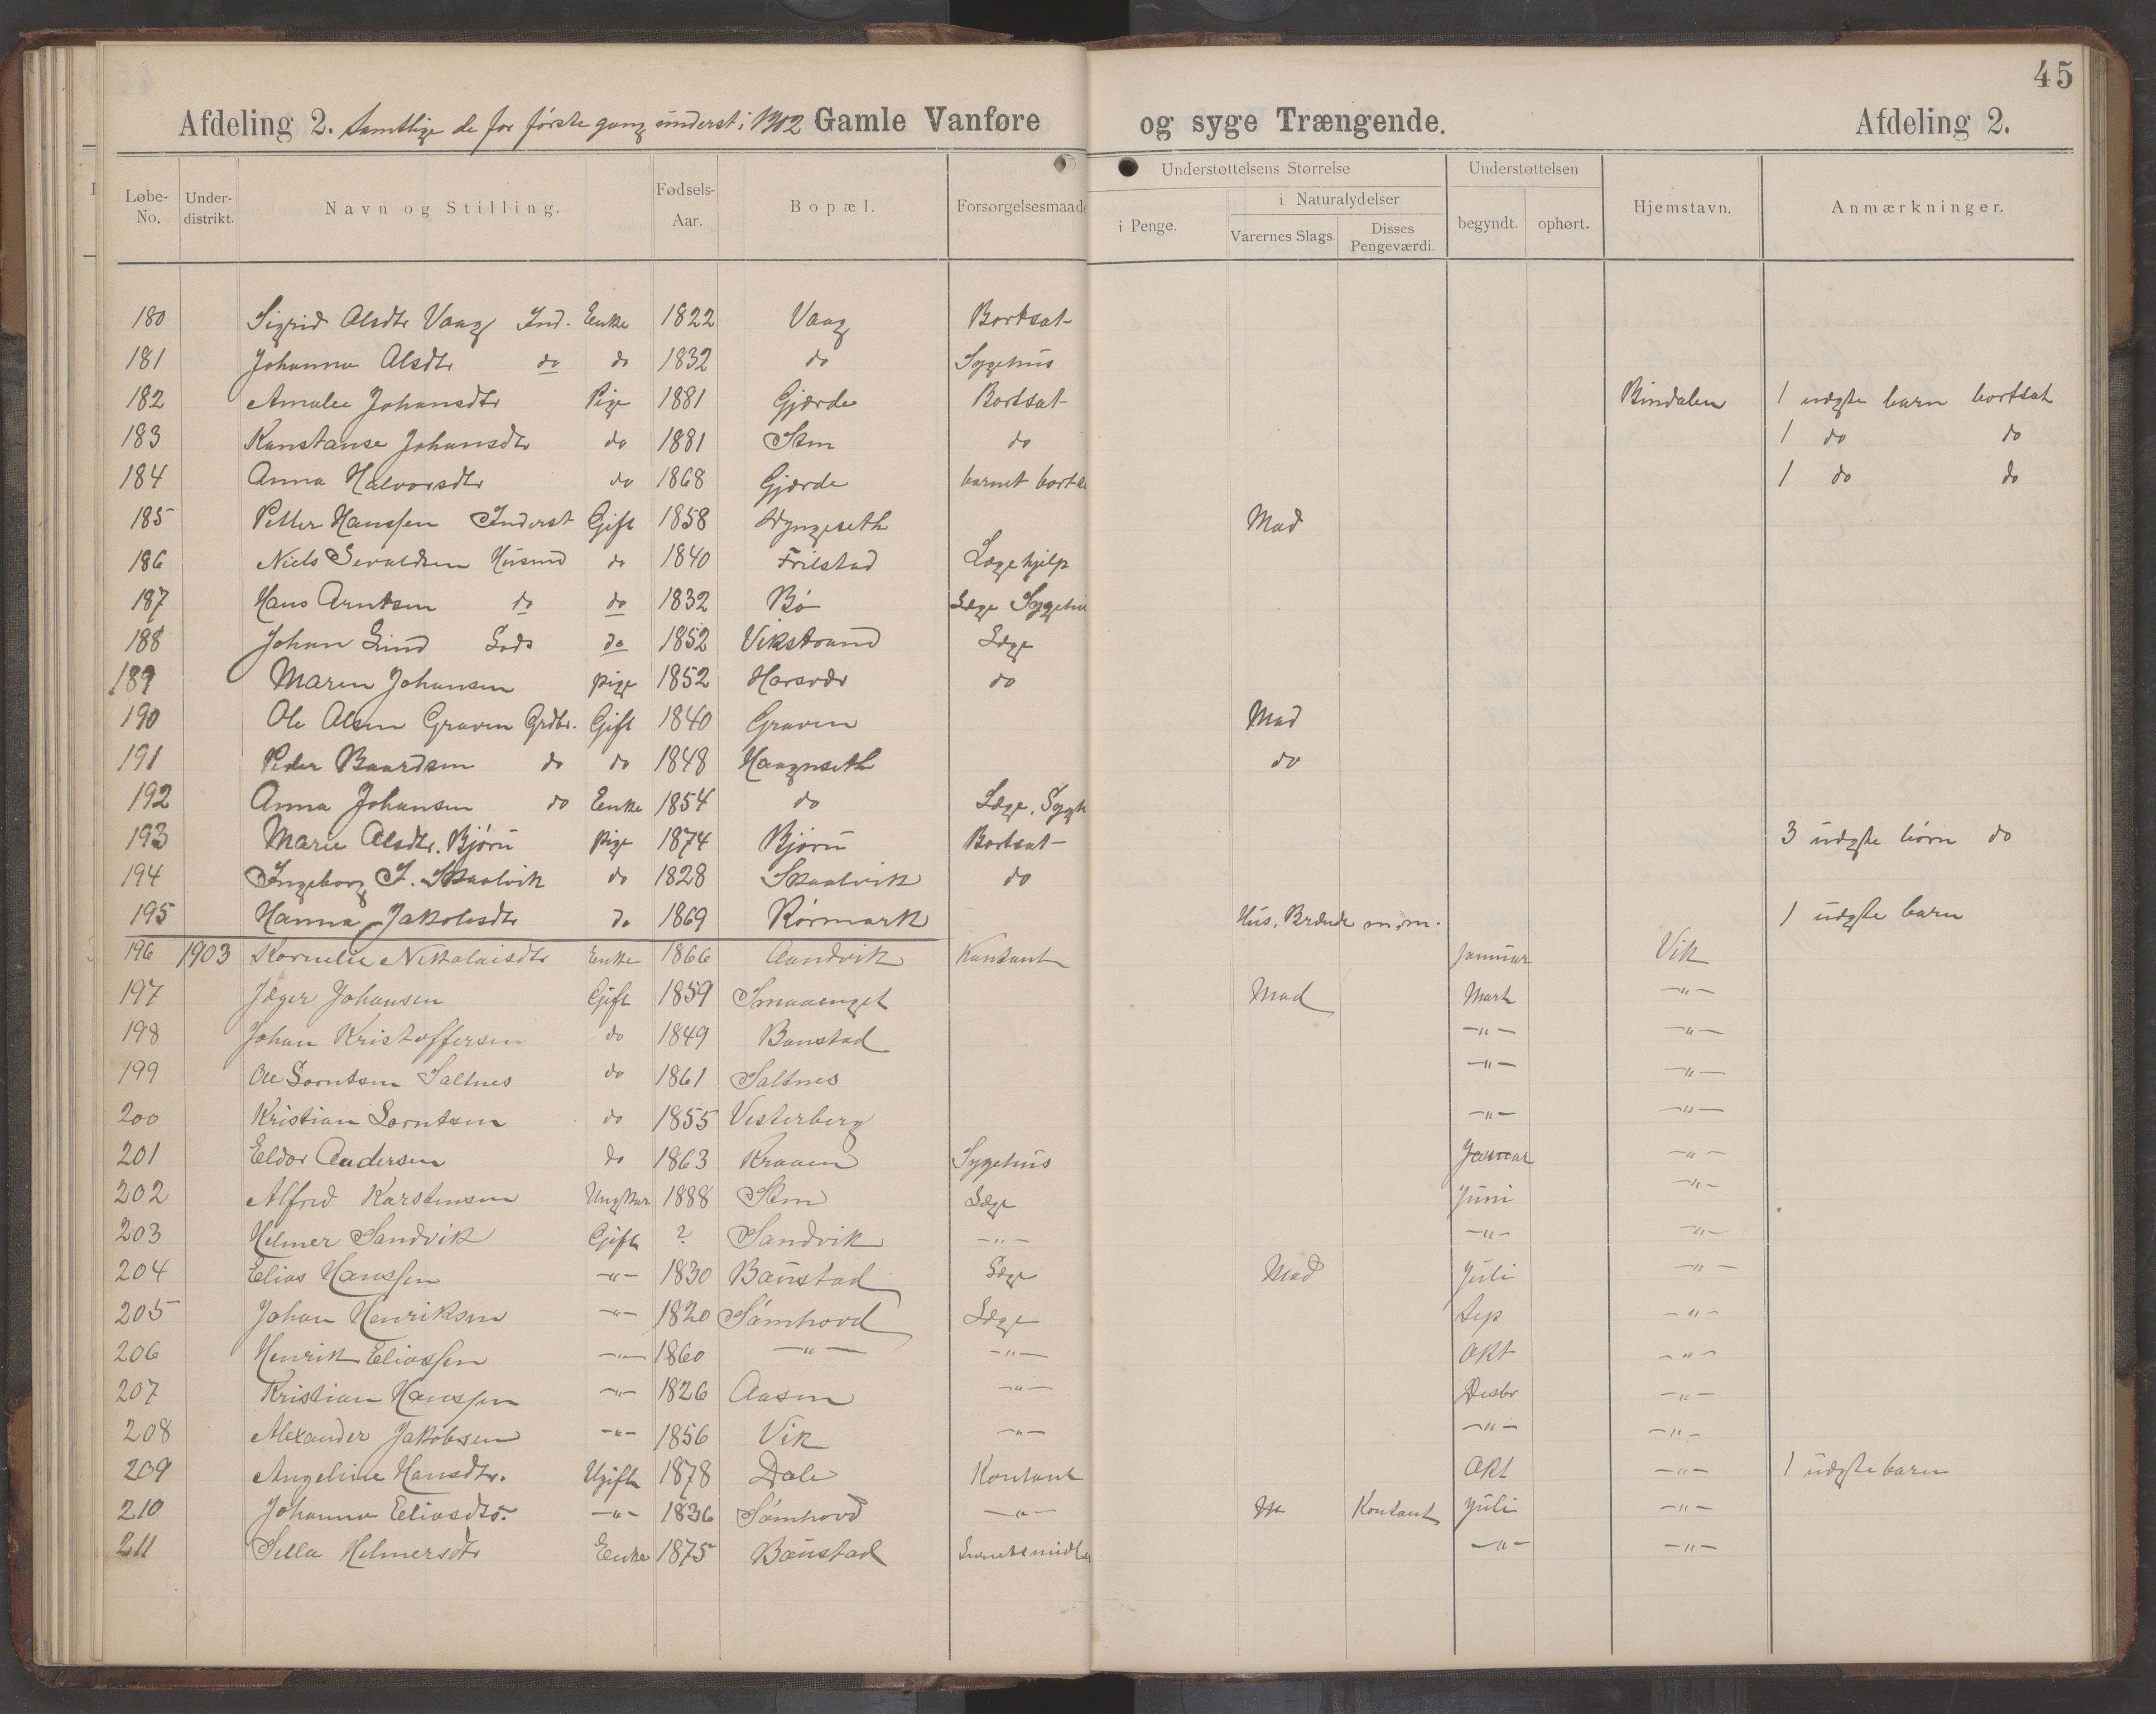 45
Afdeling 2. Samtlige de for første gang underst. i 1902 Gamle Vanføre og syge Trængende. Afdeling 2.
Løbe-No. Under-distrikt. Navn og Stilling. Fødsels-Aar. Bopæl. Forsørgelsesmaade Understøttelsens Størrelse i Penge. i Naturalydelser Varernes Slags. Disses Pengeværdi. Understøttelsen begyndt. ophørt. Hjemstavn. Anmærkninger.
180 Sigrid Olsdtr Vaag Ind. Enke 1822 Vaag Bortsat
181 Johanna Olsdtr do do 1832 do Sygehus
182 Amalie Johansdtr Pige 1881 Gjærde Bortsat Bindalen 1 uægte barn bortsat
183 Konstanse Johansdtr do 1881 Sem do 1 do do
184 Anna Halvorsdtr do 1868 Gjærde barnet 1 do do
185 Petter Hanssen Inderst Gift 1858 Mad
186 Niels Sivaldsen Husmd do 1840 Frilstad Lægehjelp
187 Hans Arntsen do do 1832 Bø Læge Sygehu
188 Johan Lund do 1852 Vikstrand Læge
189 Maren Johansen pige 1852 Horsvær do
190 Ole Olsen Graven Grdbr. Gift 1840 Graven Mad
191 Peder Baardsen do do 1848 Haagnseth do
192 Anna Johansen do Enke 1854 do Læge, Sygh
193 Marie Olsdtr. Bjørü pige 1874 Bjørü Bortsat 3 uægte børn do
194 Ingeborg I. Skaalvik do 1828 Skaalvik do
195 Hanna Jakobsdtr do 1869 Rørmark Hus, Brænde m.m. 1 uægte barn
196 1903 Kornelie Nikolaisdtr Enke 1866 Aandvik Kontant Januar Vik
197 Jæger Johansen Gift 1859 Smaaenget Mad Marts —"—
198 Johan Kristoffersen do 1849 Baustad —"— —"—
199 Ole Lorntsen Saltnes do 1861 Saltnes —"— —"—
200 Kristian Lorntsen do 1855 Vesterberg —"— —"—
201 Eldor Andersen do 1863 Kraaen Sygehus Januar —"—
202 Alfred Karstensen Ungkar 1888 Sem Læge Juni —"—
203 Helmer Sandvik Gift ? Sandvik —"— —"— —"—
204 Elias Hanssen —"— 1830 Baustad Læge Mad Juli —"—
205 Johan Henriksen —"— 1820 Sømhovd Læge Sep —"—
206 Henrik Eliassen —"— 1860 —"— —"— Okt —"—
207 Kristian Hanssen —"— 1826 Aasen —"— Desbr —"—
208 Alexander Jakobsen —"— 1856 Vik —"— —"— —"—
209 Angeline Hansdtr. Ugift 1878 Dale Kontant Okt —"— 1 uægte barn
210 Johanna Eliasdtr —"— 1836 Sømhovd —"— Kontant Juli —"—
211 Sella Helmersdtr Enke 1875 Baustad —"— —"—